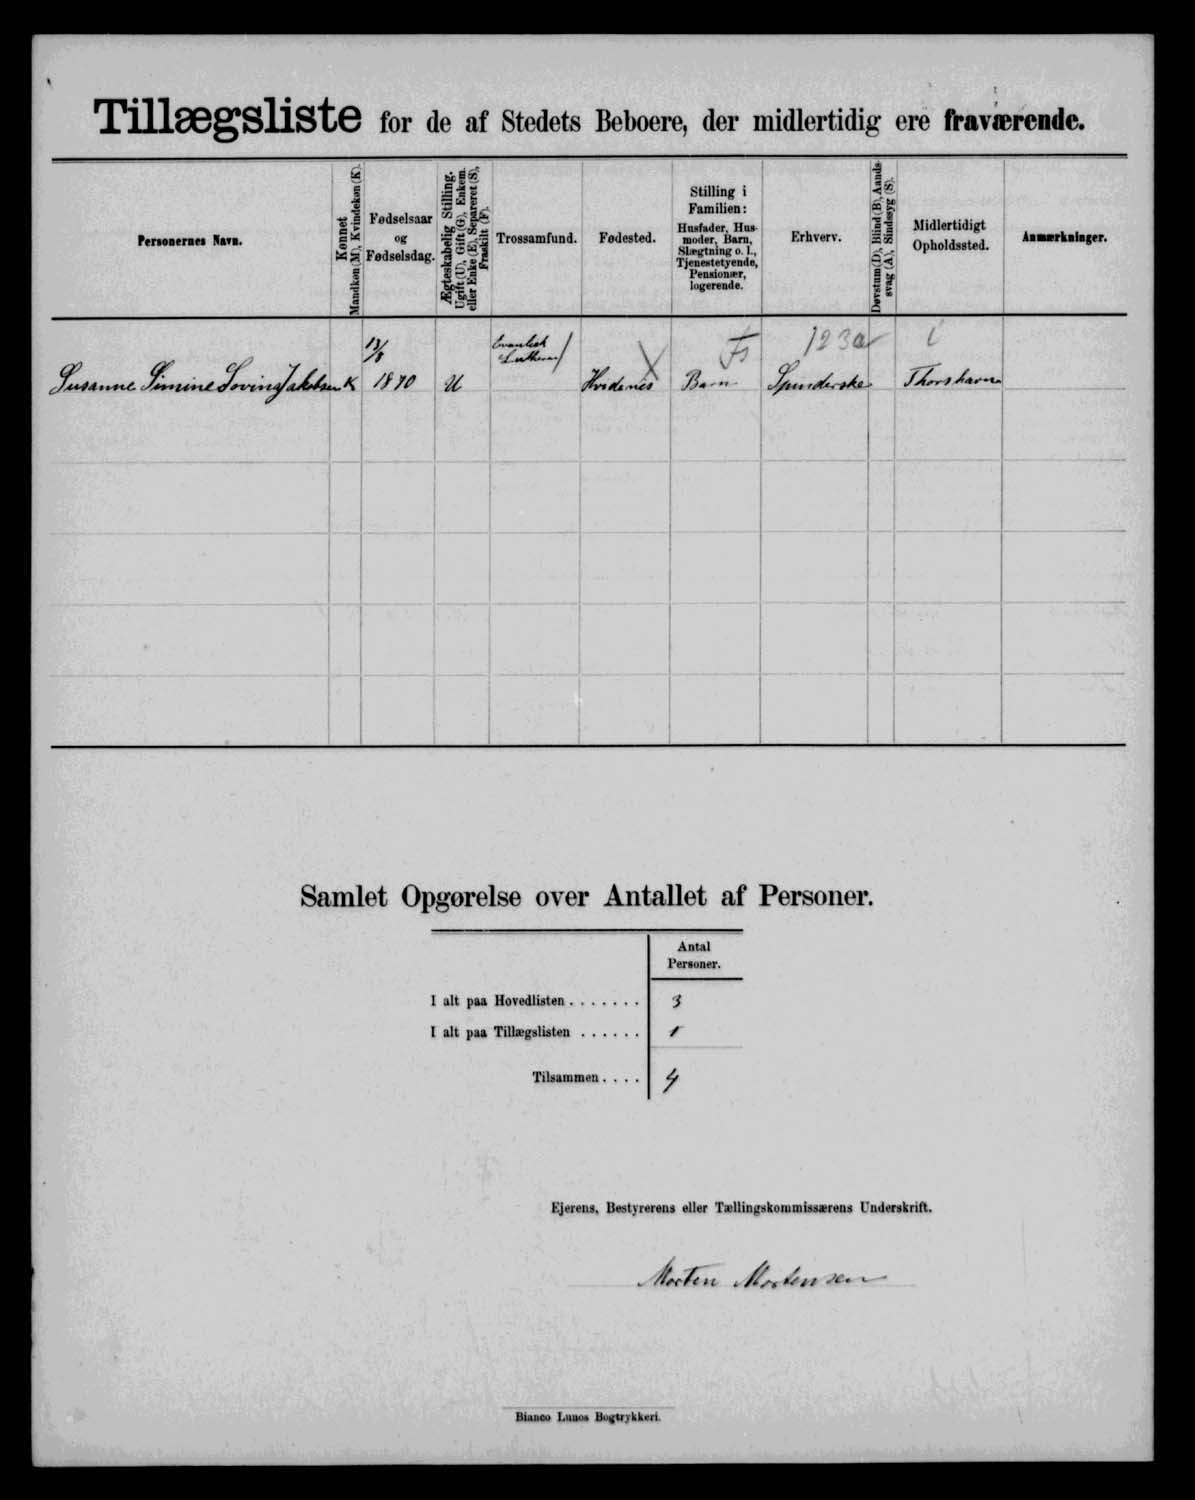 Tillægsliste for de af Stedets Beboere, der midlertidig ere fraværende.
Personernes Navn.
Kønnet
Mandkøn (M), Kvindekøn (K).
Fødselsaar
og
Fødselsdag.
Ægteskabelig Stilling.
Ugift (U), Gift (G), Enkem.
eller Enke (E), Separeret (S),
Fraskilt (F).
Trossamfund.
Fødested.
Stilling i
Familien:
Husfader, Hus-
moder, Barn,
Slægtning o. l.,
Tjenestetyende,
Pensionær,
logerende.
Erhverv.
Døvstum (D), Blind (B), Aands-
svag (A), Sindssyg (S).
Midlertidigt
Opholdssted.
Anmærkninger.
Susanne Simine Jakobsen
K
1870
U
Hvidenæs
Barn
123a
Spinderske
Thorshavn
Samlet Opgørelse over Antallet af Personer.
Antal
Personer.
I alt paa Hovedlisten . . . . . . . 3
I alt paa Tillægslisten . . . . . . 1
Tilsammen . . . . 4
Ejerens, Bestyrerens eller Tællingskommissærens Underskrift.
Morten Mortensen
Bianco Lunos Bogtrykkeri.